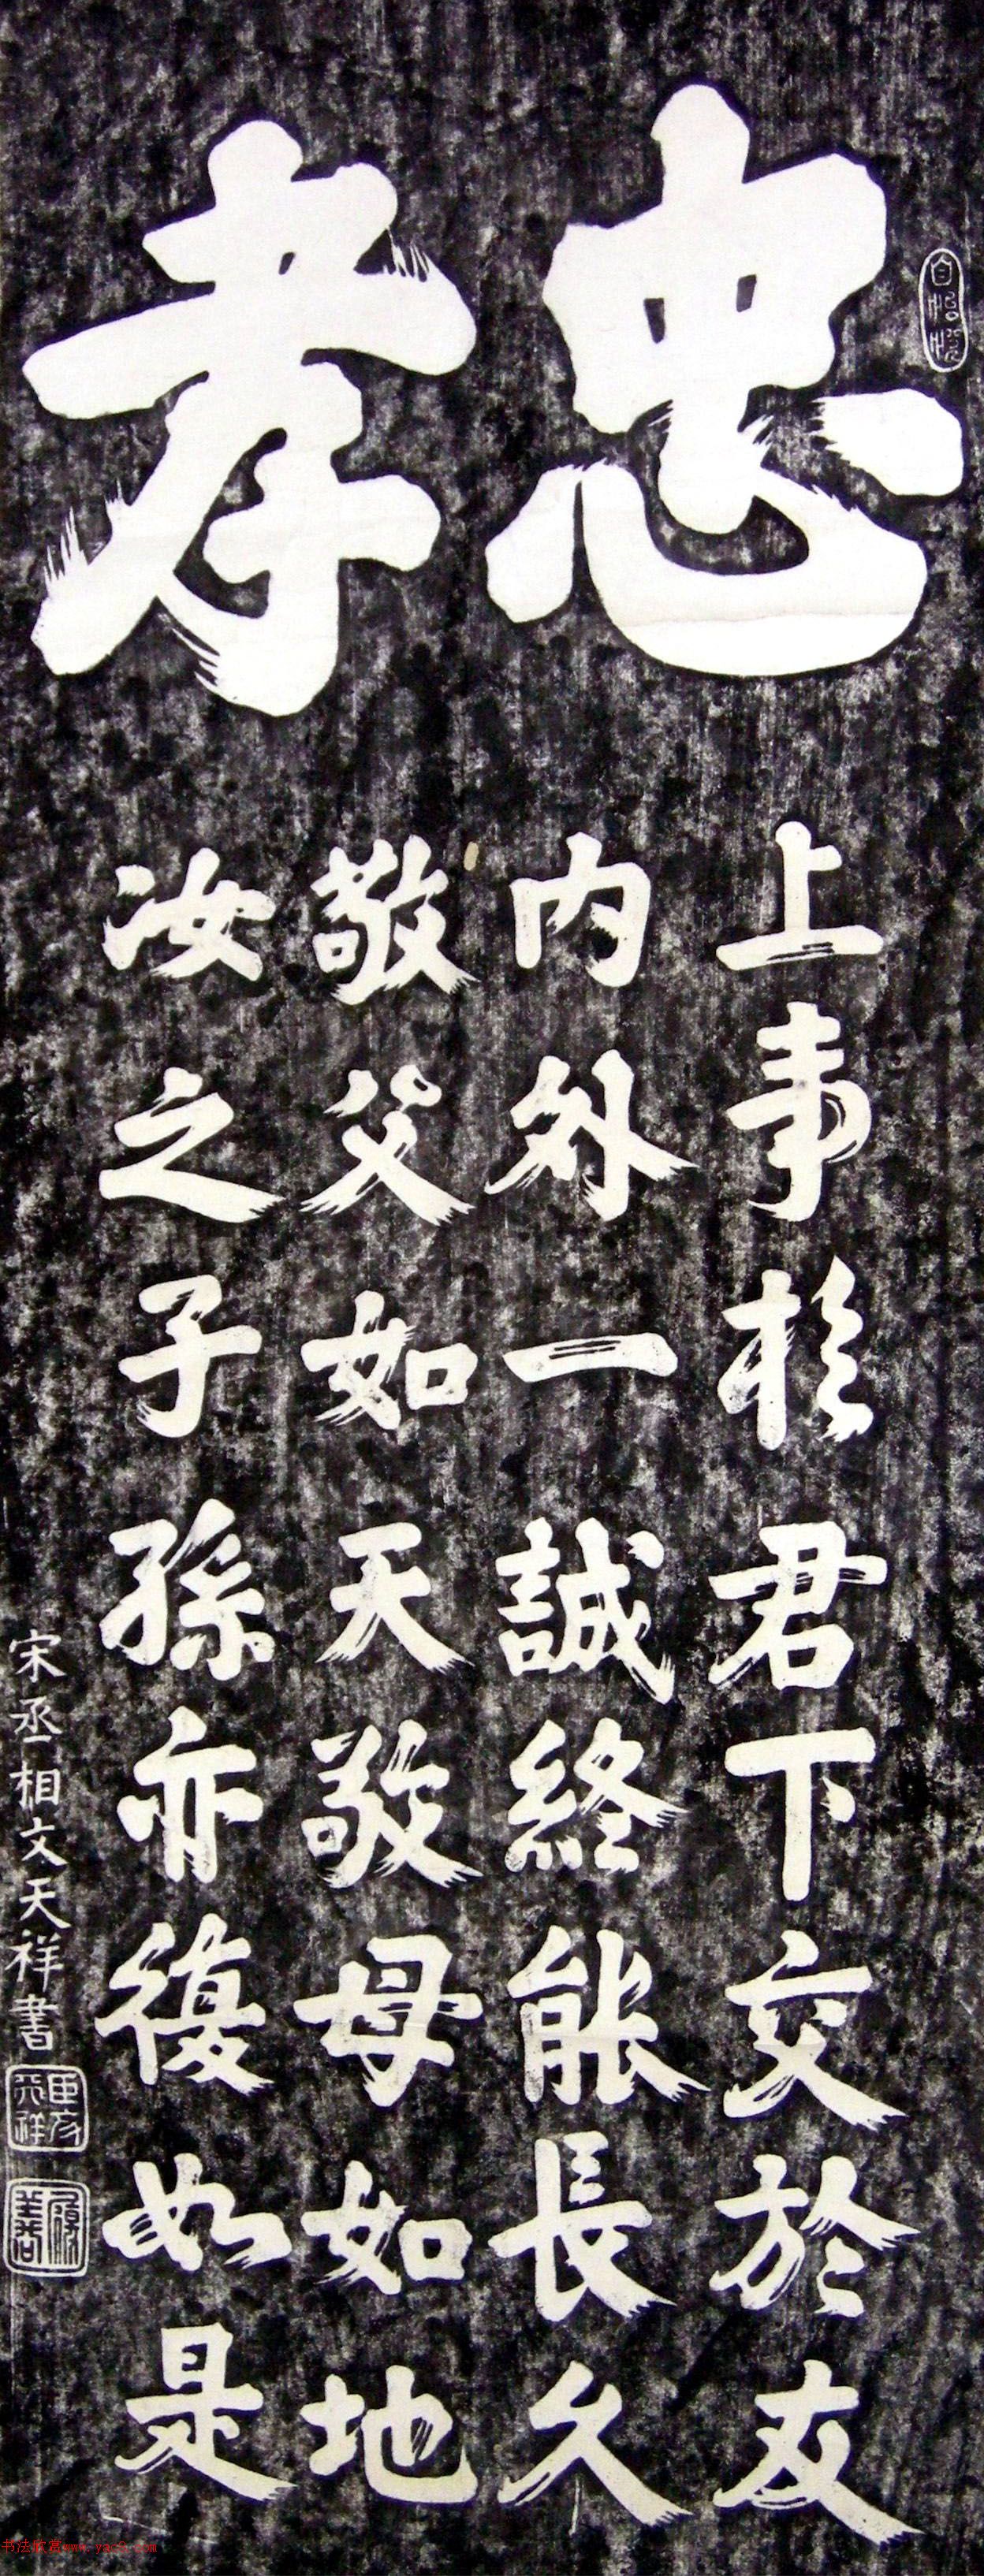 忠孝
上事於君下交於友
內外一誠終能長久
敬父如天敬母如地
汝之子孫亦復如是
宋丞相文天祥書
书法欣赏www.yac8.com